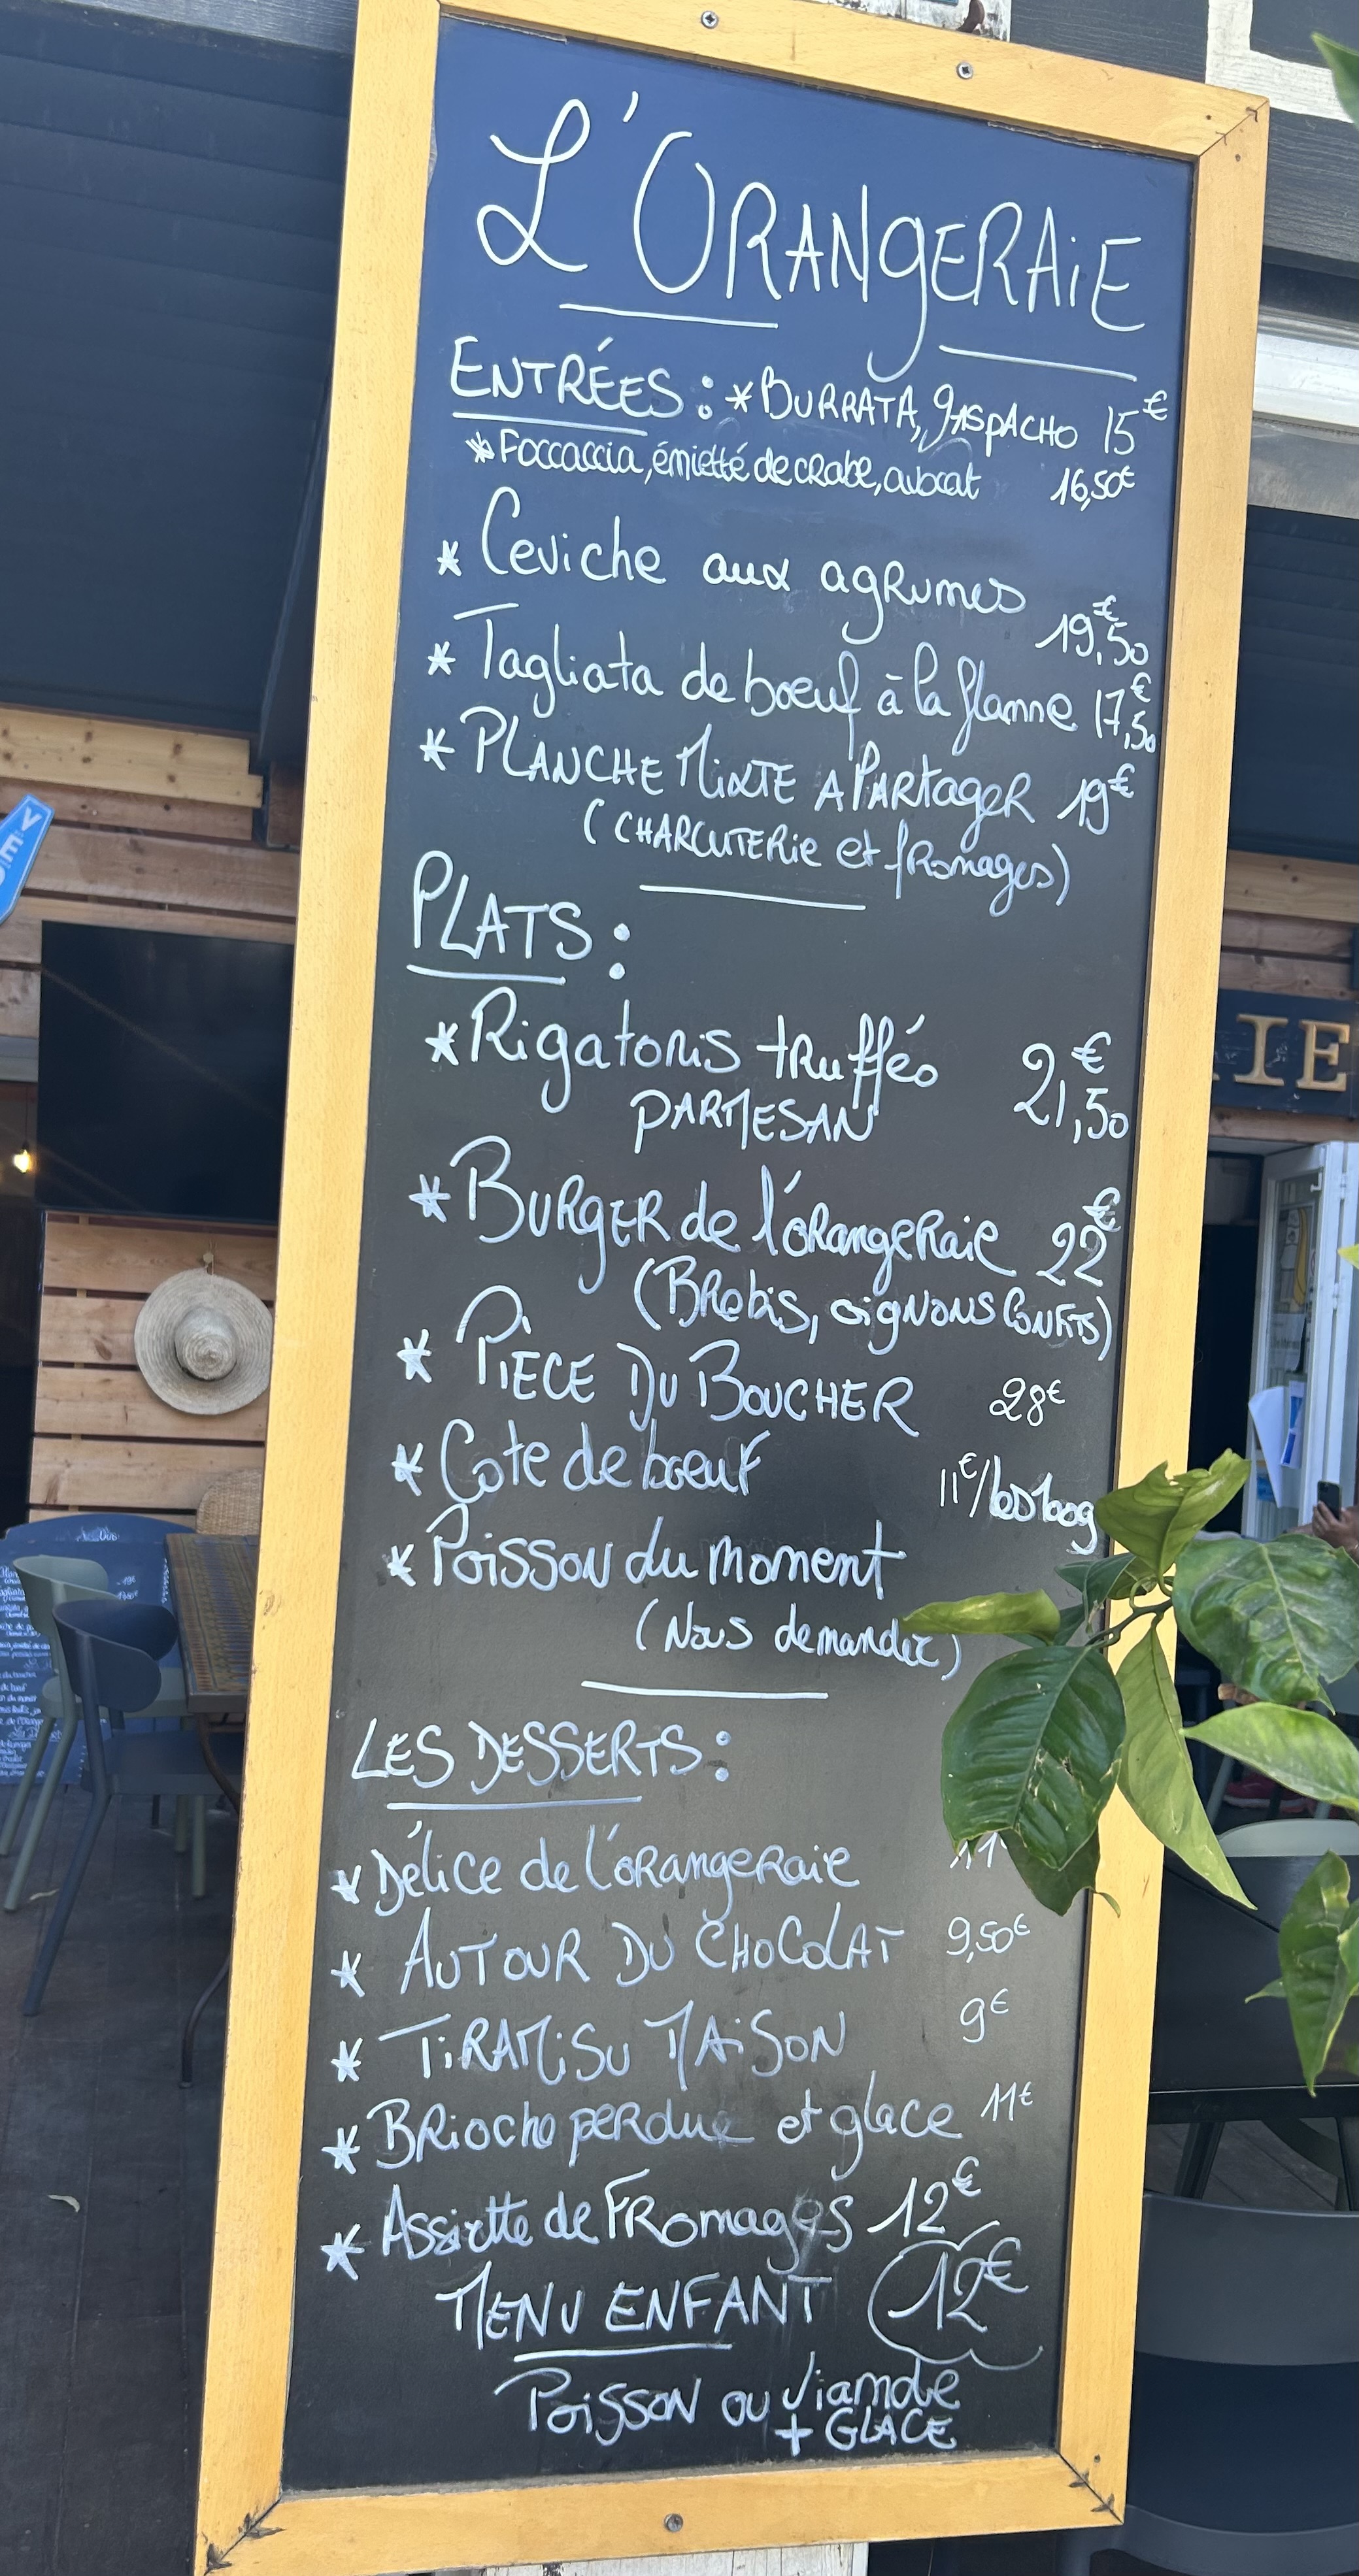 L'ORANGERAIE
ENTRÉES : * BURRATA, GASPACHO 15€
* Foccaccia, émietté de crabe, avocat 16,50€
* Ceviche aux agrumes 19€,50
* Tagliata de bœuf à la flamme 17€,50
* PLANCHE MIXTE A PARTAGER 19€
(CHARCUTERIE et fromages)
PLATS :
* Rigatonis truffés 21€,50
PARMESAN
* BURGER de l'orangeraie 22€
(Brebis, oignons confits)
* PIÈCE DU BOUCHER 28€
* Cote de boeuf 11€/les 100g
* Poisson du moment
(Nous demander)
LES DESSERTS :
* Délice de l'orangeraie 11
* AUTOUR DU CHOCOLAT 9,50€
* TIRAMISU MAISON 9€
* Brioche perdue et glace 11€
* Assiette de FROMAGES 12€
MENU ENFANT 12€
POISSON ou Viande
+ GLACE
IE